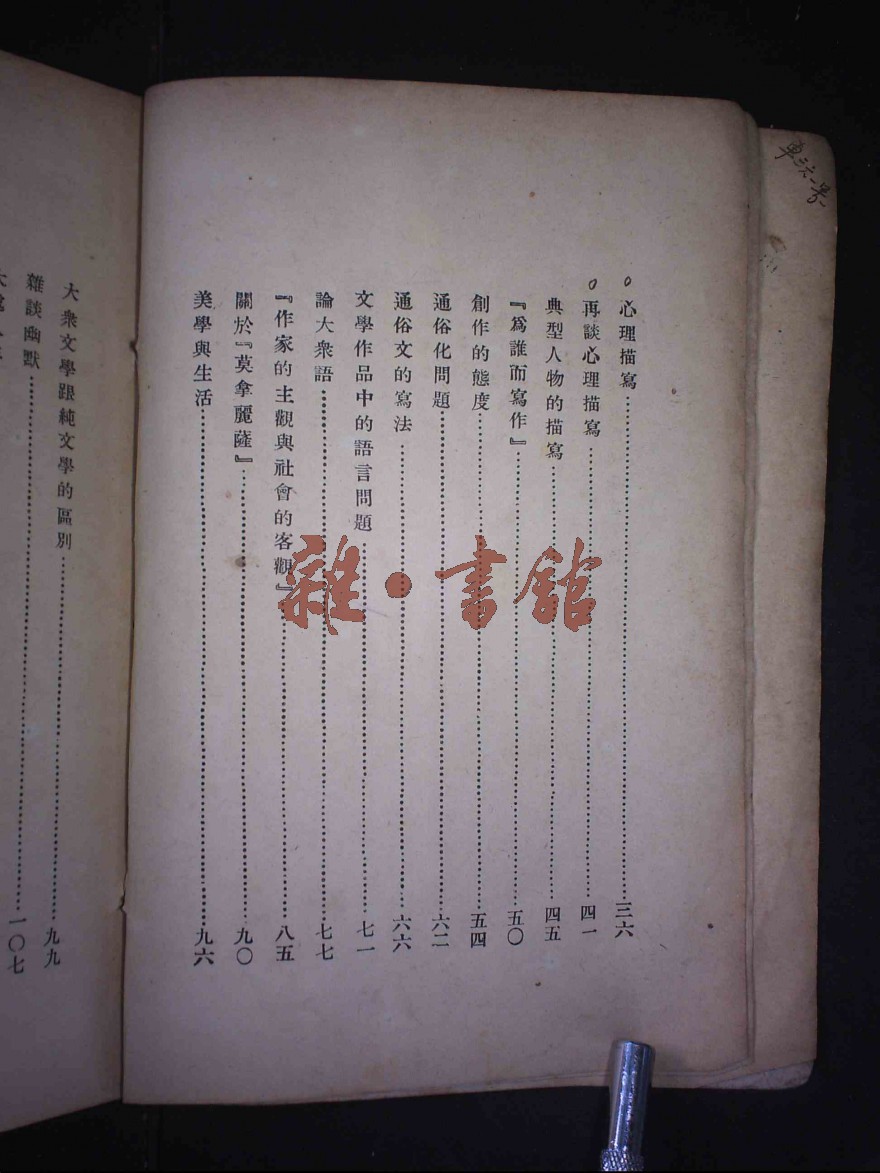 心理描寫……三六
再談心理描寫……四一
典型人物的描寫……四五
『爲誰而寫作』……五〇
創作的態度……五四
通俗化問題……六二
通俗文的寫法……六六
文學作品中的語言問題……七一
論大衆語……七七
『作家的主觀與社會的客觀』……八五
關於『莫拿麗薩』……九〇
美學與生活……九六
大衆文學跟純文學的區別……九九
雜談幽默……一〇七
雜·書館